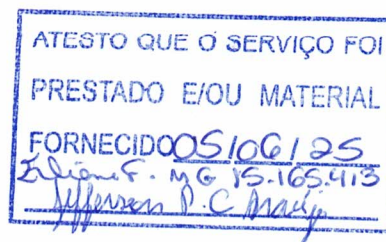 ATESTO QUE O SERVIÇO FOI
PRESTADO E/OU MATERIAL
FORNECIDO 05/06/25
F. MG 15.165.413
Jefferson P. C Araujo